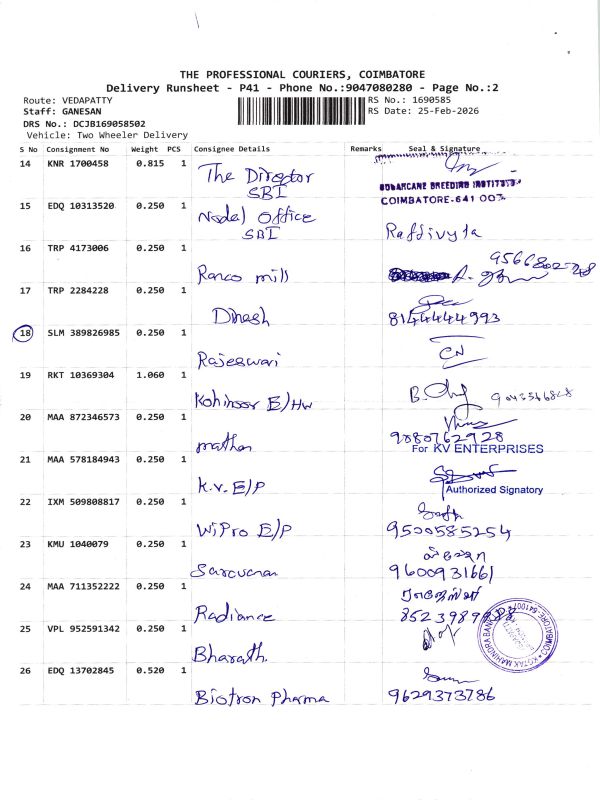 THE PROFESSIONAL COURIERS, COIMBATORE
Delivery Runsheet - P41 - Phone No.:9047080280 - Page No.:2
Route: VEDAPATTY
Staff: GANESAN
DRS No.: DCJB169058502
Vehicle: Two Wheeler Delivery
RS No.: 1690585
RS Date: 25-Feb-2026
S No Consignment No Weight PCS Consignee Details Remarks Seal & Signature
14 KNR 1700458 0.815 1 The Director
SBI
SUGARCANE BREEDING INSTITUTE
COIMBATORE-641 007.
15 EDQ 10313520 0.250 1 Nodal Office
SBI
16 TRP 4173006 0.250 1 Ranco mill
17 TRP 2284228 0.250 1 Dinesh
8144444993
18 SLM 389826985 0.250 1 Rajeswari
CN
19 RKT 10369304 1.060 1 Kohinoor E/HW
20 MAA 872346573 0.250 1 mathan
9880762928
21 MAA 578184943 0.250 1 K.V. E/P
For KV ENTERPRISES
Authorized Signatory
22 IXM 509808817 0.250 1 WiPro E/P
9500585254
23 KMU 1040079 0.250 1 Saravanan
9600931661
24 MAA 711352222 0.250 1 Radiance
25 VPL 952591342 0.250 1 Bharath.
KOTAK MAHINDRA BANK
COIMBATORE
26 EDQ 13702845 0.520 1 Biotron Pharma
9629373786